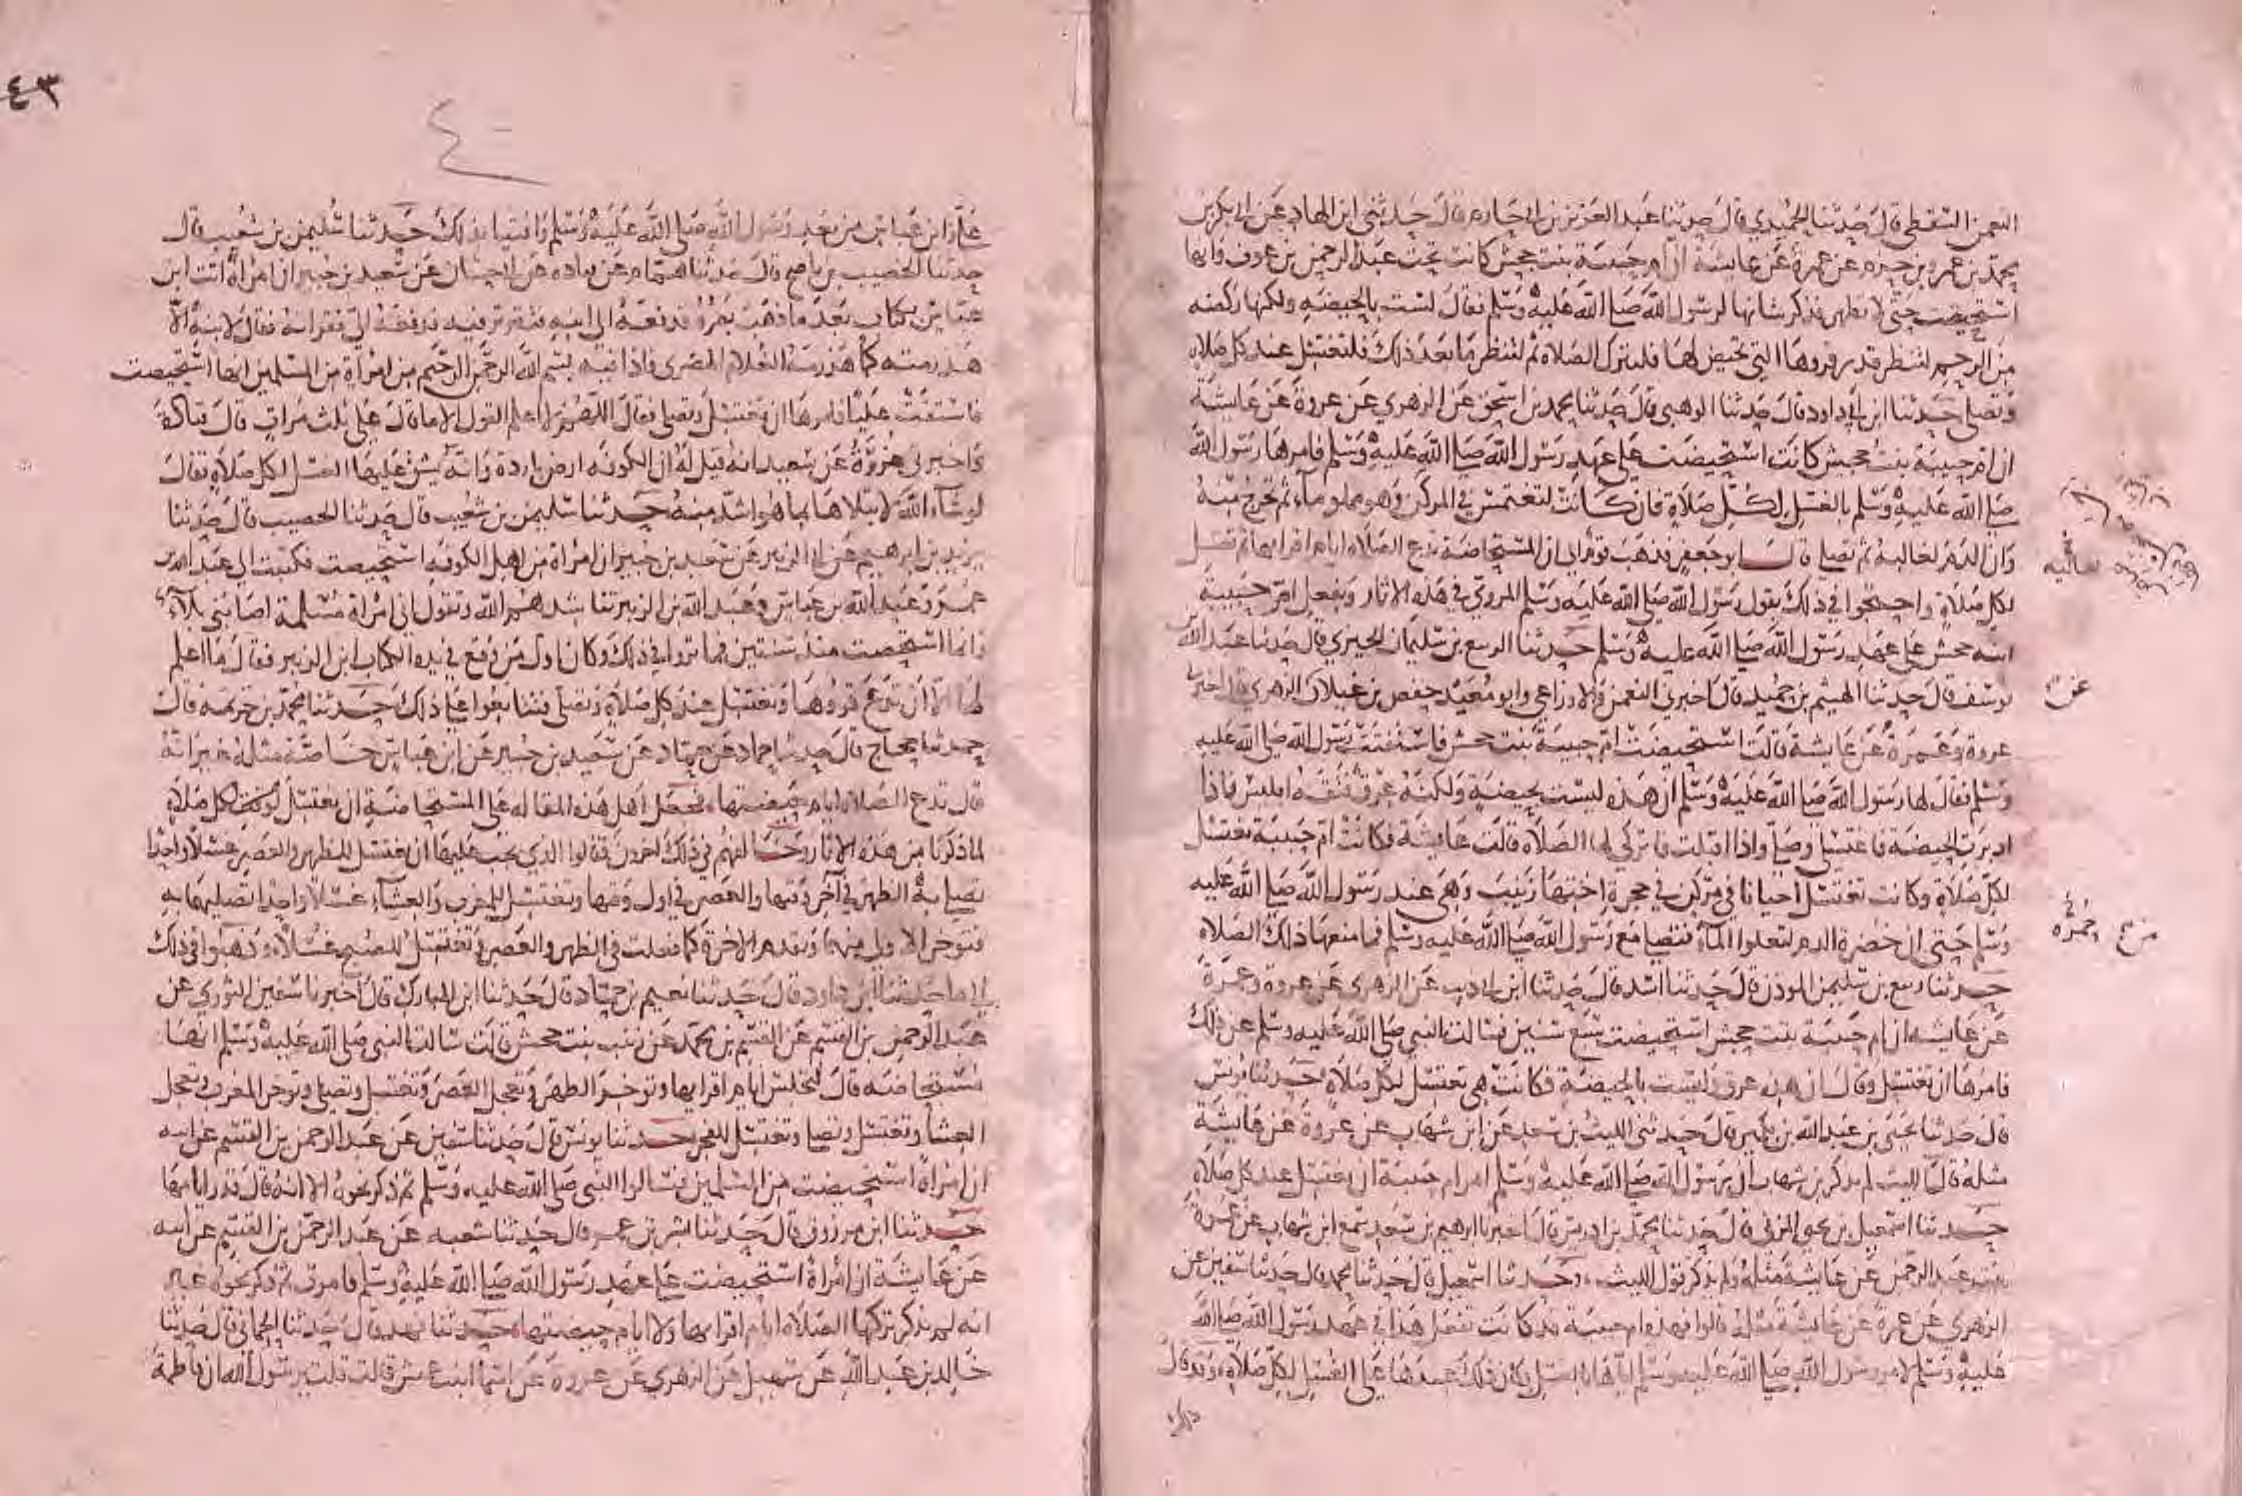 النعمن السقطي قال حدثنا الحميدي قال حدثنا عبد العزيز بن ابي حازم قال حدثني ابن الهاد عن ابي بكر بن
محمد بن عمرو بن حزم عن عمرة عن عايشة ان ام حبيبة بنت جحش كانت تحت عبد الرحمن بن عوف وانها
استحيضت حتى لا تطهر فذكر شانها لرسول الله صلى الله عليه وسلم فقال ليست بالحيضة ولكنها ركضة
من الرحم لتنظر قدر قروها التي تحيض لها فلتترك الصلاة ثم لتنظر ما بعد ذلك فلتغتسل عند كل صلاة
وتصلي حدثنا ابن ابي داود قال حدثنا الوهبي قال حدثنا محمد بن اسحق عن الزهري عن عروة عن عايشة
ان ام حبيبة بنت جحش كانت استحيضت على عهد رسول الله صلى الله عليه وسلم فامرها رسول الله
صلى الله عليه وسلم بالغسل لكل صلاة فان كانت لتغتمس في المركن وهو مملو مآء ثم تخرج منه
وان الدم لغالبه ثم تصلي قال ابو جعفر فذهب قوم الى ان المستحاضة تدع الصلاة ايام اقرايها ثم تغتسل
لكل صلاة واحتجوا في ذلك بقول رسول الله صلى الله عليه وسلم المروي في هذه الاثار وبفعل ام حبيبة
ابنة جحش على عهد رسول الله صلى الله عليه وسلم حدثنا الربيع بن سليمان الجيزي قال حدثنا عبد الله بن
يوسف قال حدثنا الهيثم بن حميد قال اخبرني النعمن والاوزاعي وابو معيد حفص بن غيلان الزهري قال اخبرني
عروة وعمرة عن عايشة قالت استحيضت ام حبيبة بنت جحش فاستفتت رسول الله صلى الله عليه
وسلم فقال لها رسول الله صلى الله عليه وسلم ان هذه ليست بحيضة ولكنه عرق فتقه ابليس فاذا
ادبرت الحيضة فاغتسلي وصلي واذا اقبلت فاتركي لها الصلاة قالت عايشة فكانت ام حبيبة تغتسل
لكل صلاة وكانت تغتسل احيانا في مركن في حجرة اختها زينب وهي عند رسول الله صلى الله عليه
وسلم حتى ان حمرة الدم لتعلوا المآء فتصلي مع رسول الله صلى الله عليه وسلم فما منعها ذلك الصلاة
حدثنا ربيع بن سليمن المؤذن قال حدثنا اسد قال حدثنا ابن ابي ذيب عن الزهري عن عروة وعمرة
عن عايشه ان ام حبيبة بنت جحش استحيضت سبع سنين فسالت النبي صلى الله عليه وسلم عن ذلك
فامرها ان تغتسل وقال ان هذه عرق وليست بالحيضة فكانت هي تغتسل لكل صلاة حدثنا يونس
قال حدثنا يحيى بن عبد الله بن بكير قال حدثني الليث بن سعد عن ابن شهاب عن عروة عن عايشة
مثله قال الليث لم يذكر بن شهاب ان رسول الله صلى الله عليه وسلم امر ام حبيبة ان تغتسل عند كل صلاة
حدثنا اسمعيل بن يحيى المزني قال حدثنا محمد بن ادريس قال اخبرنا ابرهيم بن سعد سمع ابن شهاب عن عمرة
بنت عبد الرحمن عن عايشة مثله ولم يذكر قول الليث وحدثنا اسمعيل قال حدثنا محمد قال حدثنا سفين عن
الزهري عن عمرة عن عايشة مثله قالوا فهذه ام حبيبة قد كانت تفعل هذا في عهد رسول الله صلى الله
عليه وسلم لامر رسول الله صلى الله عليه وسلم اياها بالغسل فكان ذلك عندها على الغسل لكل صلاة وقد قال
لعاليه
عن
حمرة
ذلك
٤٣
٤
علي وابن عباس من بعد رسول الله صلى الله عليه وسلم وافتيا بذلك حدثنا سليمن بن شعيب قال
حدثنا الخصيب بن ناصح قال حدثنا همام عن قتاده عن ابي حسان عن سعيد بن جبير ان امراة اتت ابن
عباس بكتاب بعد ما ذهب بصره فدفعه الى ابنه فتترتر فيه فدفعه الي فقراته فقال لابنه الا
هذرمته كما هذرمه الغلام المصري فاذا فيه بسم الله الرحمن الرحيم من امراة من المسلمين انها استحيضت
فاستفتت عليا فامرها ان تغتسل وتصلي فقال اللهم لا اعلم القول الا ما قال علي ثلث مرات قال قتادة
واخبرني عزرة عن سعيد انه قيل له ان الكوفه ارض باردة وانه يشق عليها الغسل لكل صلاة فقال
لو شآء الله لابتلاها بما هو اشد منه حدثنا سليمن بن شعيب قال حدثنا الخصيب قال حدثنا
يزيد بن ابرهيم عن ابي الزبير عن سعيد بن جبير ان امراة من اهل الكوفه استحيضت فكتبت الى عبد الله بن
عمر وعبد الله بن عباس وعبد الله بن الزبير تناشدهم الله وتقول اني امراة مسلمة اصابني بلآء
وانما استحيضت منذ سنتين فما تروا في ذلك وكان اول من وقع في يده الكتاب ابن الزبير فقال ما اعلم
لها الا ان تدع قروها وتغتسل عند كل صلاة وتصلي فتتابعوا على ذلك حدثنا محمد بن خزيمه قال
حدثنا حجاج قال حدثنا حماد عن حماد عن سعيد بن جبير عن ابن عباس خاصة مثله غير انه
قال تدع الصلاة ايام حيضتها فجعل اهل هذه المقاله على المستحاضة ان تغتسل لوقت كل صلاة
لما ذكرنا من هذه الاثار وخالفهم في ذلك اخرون فقالوا الذي يجب عليها ان تغتسل للظهر والعصر غسلا واحدا
تصلي به الظهر في آخر وقتها والعصر في اول وقتها وتغتسل للمغرب والعشآء غسلا واحدا تصليهما به
فتوخر الاولى منهما وتقدم الاخرة كما فعلت في الظهر والعصر وتغتسل للصبح غسلا وذهبوا في ذلك
الى ما حدثنا ابن ابي داود قال حدثنا نعيم بن حماد قال حدثنا ابن المبارك قال اخبرنا سفين الثوري عن
عبد الرحمن بن القسم عن القسم بن محمد عن زينب بنت جحش قالت سالت النبي صلى الله عليه وسلم انها
مستحاضه قال لتجلس ايام اقرايها وتوخر الظهر وتعجل العصر وتغتسل وتصلي وتوخر المغرب وتعجل
العشا وتغتسل وتصلي وتغتسل للفجر حدثنا يونس قال حدثنا سفين عن عبد الرحمن بن القسم عن ابيه
ان امراة استحيضت من المسلمين فسالوا النبي صلى الله عليه وسلم ثم ذكر نحوه الا انه قال قدر ايامها
حدثنا ابن مرزوق قال حدثنا بشر بن عمر قال حدثنا شعبه عن عبد الرحمن بن القسم عن ابيه
عن عايشة ان امراة استحيضت على عهد رسول الله صلى الله عليه وسلم فامرت ثم ذكر نحوه غير
انه لم يذكر تركها الصلاة ايام اقرايها ولا ايام حيضتها حدثنا فهد قال حدثنا الحماني قال حدثنا
خالد بن عبد الله عن سهيل عن الزهري عن عروة عن اسما ابنت عميس قالت قلت يرسول الله ان فاطمة